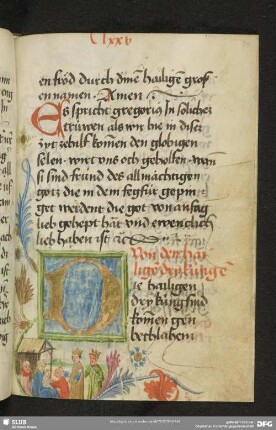 Clxxv
en frod durch dine hailige groß
en namen. Amen.
Es spricht gregoriꝰ In solicher
trüwen als wir hie in diser
zyt ze hulf komen den glöbigen
selen. wirt vns och geholfen. wan
si sind fründ des allmächtigen
gotz die in dem fegfür gepini
get werdent die got von anfag
lieb gehept hät vnd ewenclich
lieb haben ist ꝛc
Von den hai
ligē dry künge
Die hailigen
dry küng sind
komen gen
bethlahem
SLUB
DFG